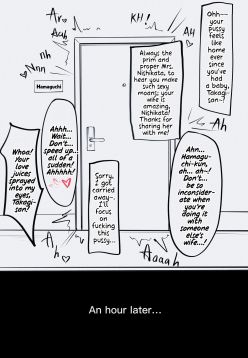 Ar
Auh
KH!
AH
nh
Nnn
Ohh—
your
pussy
feels
like
home
ever
since
you've
had a
baby,
Takagi-
san~!
Always the
prim and
proper Mrs.
Nishikata, to
hear you make
such sexy
moans; your
wife is
amazing,
Nishikata!
Thanks for
sharing her
with me!
Hamaguchi
Ah
Ahhh...
Wait...
Don't...
speed up..
all of a
sudden!
Ahhhhh!
Ahn...
Hamagu-
chi-kun,
ah... ah~!
Don't...
be so
inconsider-
ate when
you're
doing it
with
someone
else's
wife...!
Whoa!
Your
love
juices
sprayed
into my
eyes,
Takagi-
san!
Sorry,
I got
carried
away—
I'll
focus
on
fucking
this
pussy...
Ah
Aaaah
An hour later...